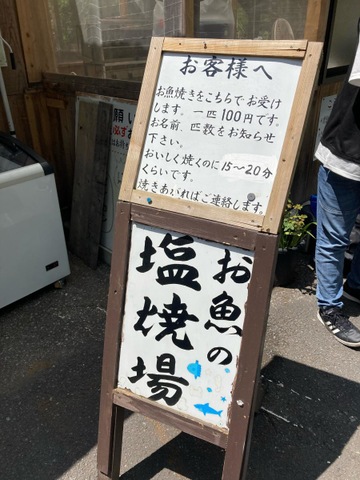 お客様へ
お魚焼きをこちらでお受け
します。一匹100円です。
お名前、匹数をお知らせ
下さい。
おいしく焼くのに15〜20分
くらいです。
焼きあがればご連絡します。
お魚の
塩焼場